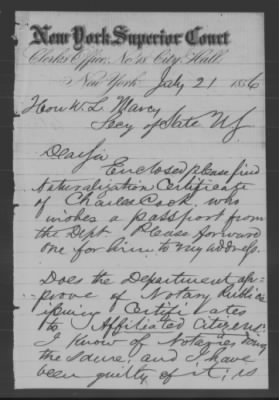 New York Superior Court
Clerk's Office, No. 18 City Hall.
New York July 21 1856
Hon W. L. Marcy
Secy of State
Dear Sir
Enclosed please find
Naturalization Certificate
of Charles Cook who
wishes a passport from
the Dept Please forward
one for him to my address.
Does the Department ap-
prove of Notary Publics
issuing Certificates
to Affiliated Citizens
I know of Notaries doing
the same, and I have
been guilty of it; is